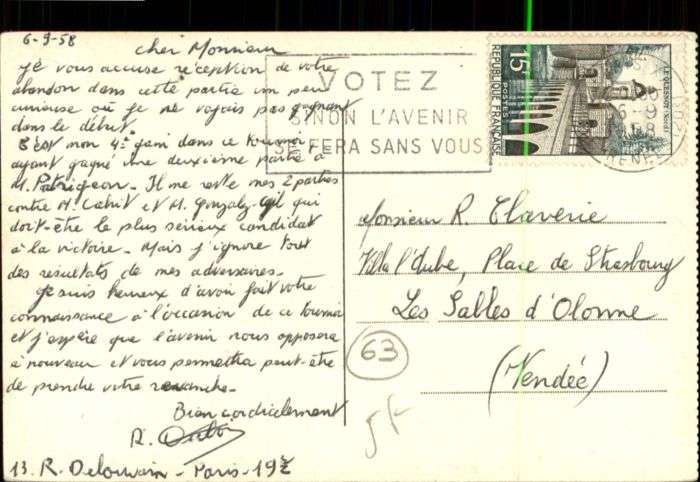 6-9-58
Cher Monsieur
Je vous accuse réception de votre
abandon dans cette partie un peu
curieuse où je ne voyais pas gagnant
dans le début.
C'est mon 4e gain dans ce tournoi
ayant gagné une deuxième partie à
M. Patrigeon. Il me reste mes 2 parties
contre M. et M. qui
doit-être le plus sérieux candidat
à la victoire. Mais j'ignore tout
des résultats de mes adversaires.
Je suis heureux d'avoir fait votre
connaissance à l'occasion de ce tournoi
et j'espère que l'avenir nous opposera
à nouveau et vous permettra peut-être
de prendre votre revanche.
Bien cordialement
R.
13. R. Delouvain - Paris - 19e
VOTEZ
SINON L'AVENIR
SE FERA SANS VOUS
15F
POSTES
RÉPUBLIQUE FRANÇAISE
LE QUESNOY (Nord)
Monsieur R. Claverie
Villa l'Aube, Place de Strasbourg
Les Sables d'Olonne
(Vendée)
63